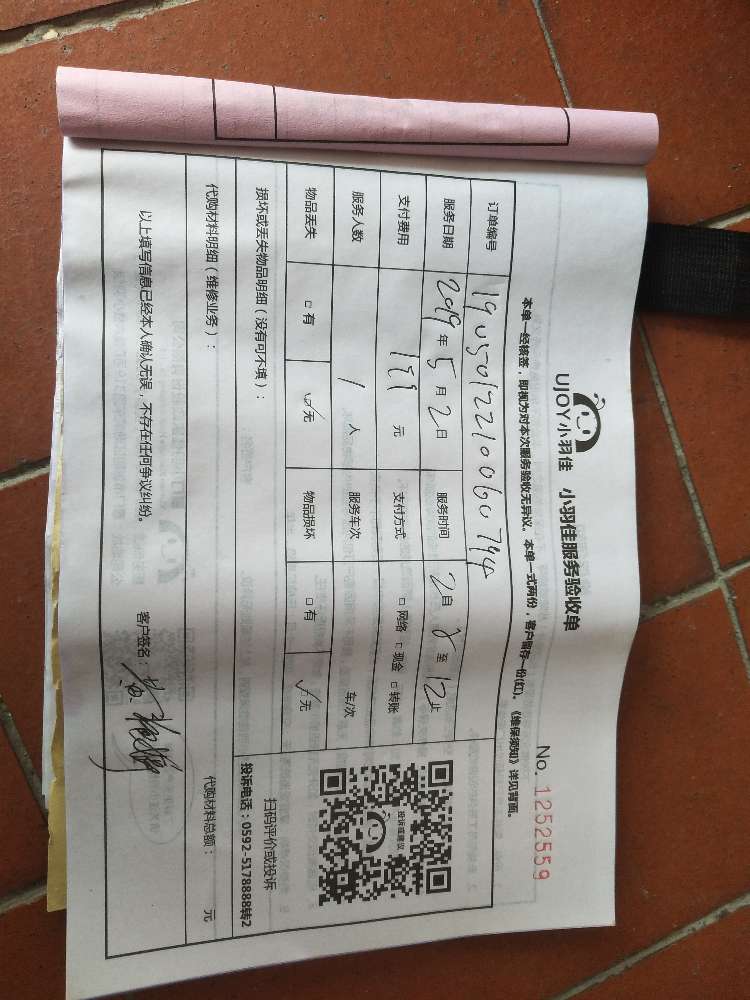 UJOY小羽佳 小羽佳服务验收单
No. 1252559
本单一经核签，即视为对本次服务验收无异议。本单一式两份，客户留存一份(红)。《维保须知》详见背面。
订单编号
服务日期 2019年5月2日 服务时间 2自8至12止
支付费用 元 支付方式 □网络 □现金 □转账
服务人数 1人 服务车次 车/次
物品丢失 □有 ☑无 物品损坏 □有 ☑无
投诉或建议
扫码评价或投诉
投诉电话：0592-5178888转2
损坏或丢失物品明细（没有可不填）：
代购材料明细（维修业务）： 代购材料总额： 元
以上填写信息已经本人确认无误，不存在任何争议纠纷。 客户签名：